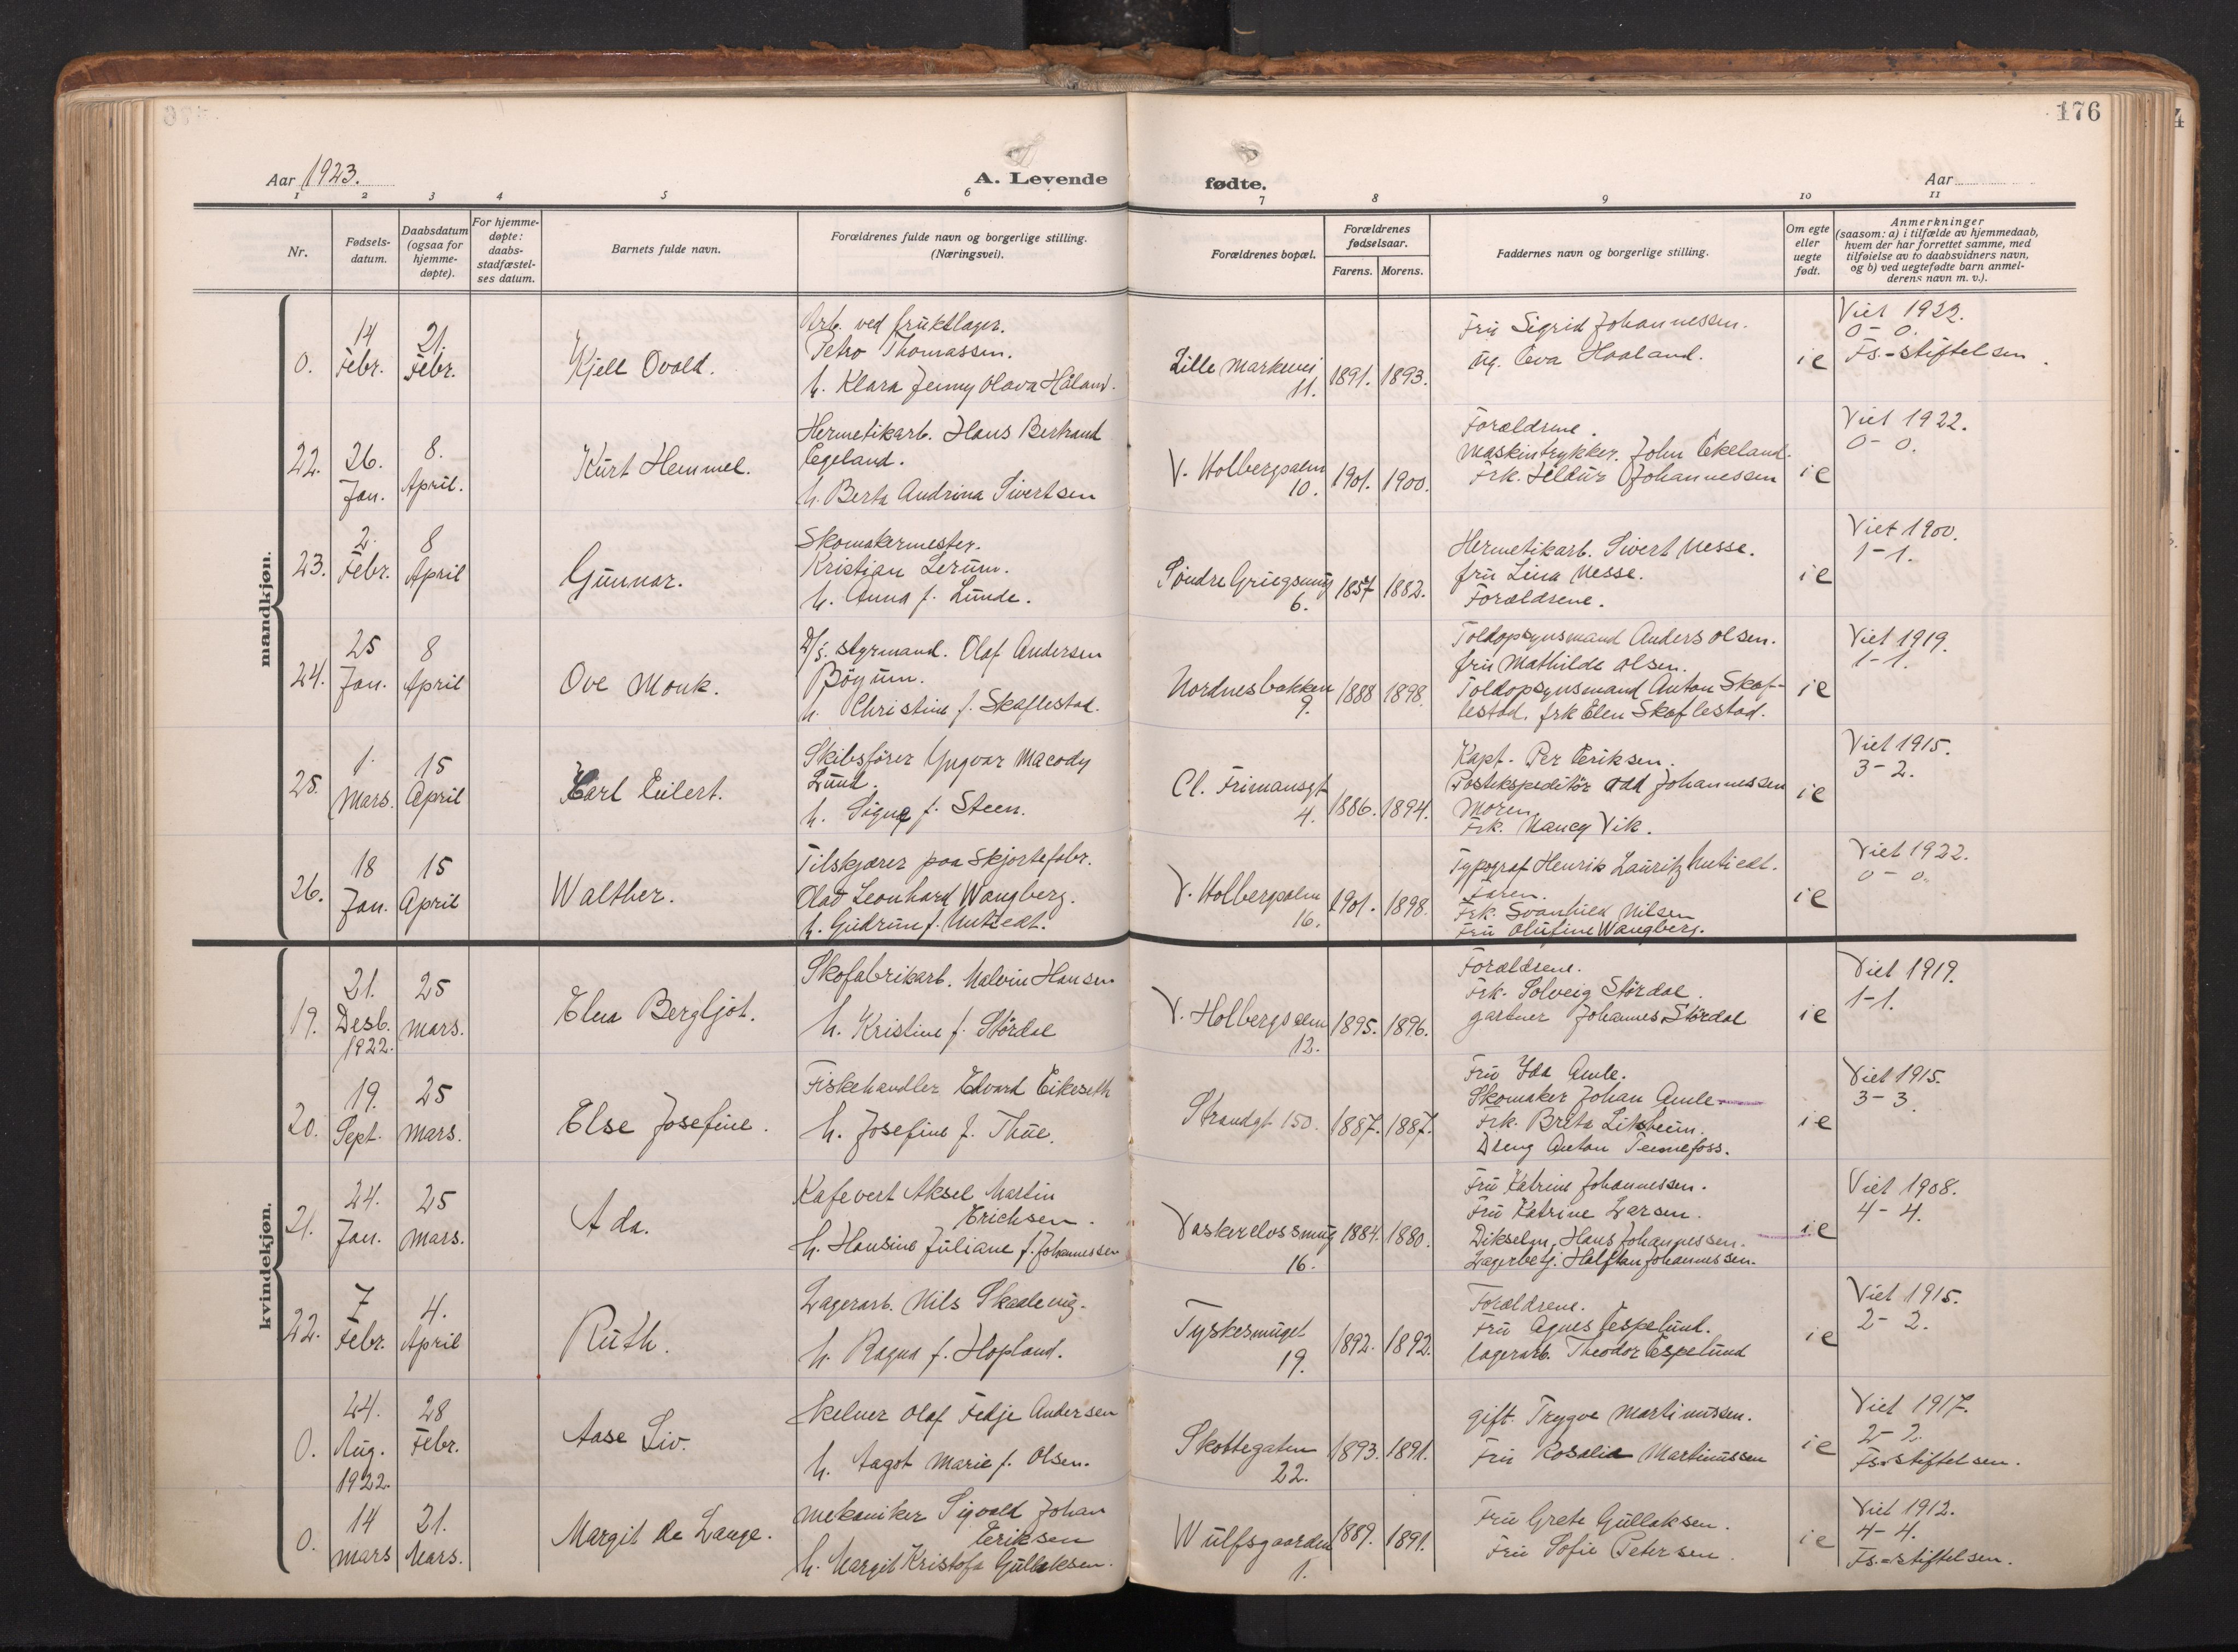 176
Aar 1923.
A. Levende
fødte.
Aar
1 2 3 4 5 6 7 8 9 10 11
Nr.
Fødsels-
datum.
Daabsdatum
(ogsaa for
hjemme-
døpte).
For hjemme-
døpte:
daabs-
stadfæstel-
ses datum.
Barnets fulde navn.
Forældrenes fulde navn og borgerlige stilling.
(Næringsvei).
Forældrenes bopæl.
Forældrenes
fødselsaar.
Farens. Morens.
Faddernes navn og borgerlige stilling.
Om egte
eller
uegte
født.
Anmerkninger
(saasom: a) i tilfælde av hjemmedaab,
hvem der har forrettet samme, med
tilføielse av to daabsvidners navn,
og b) ved uegtefødte barn anmel-
derens navn m. v.).
mandkjøn.
0.
14
Febr.
21.
Febr.
Kjell Ovald.
Arb. ved fruktlager.
Petro Thomassen.
h. Klara Jenny Olava Håland.
Lille Markevei
11.
1891. 1893.
Fru Sigrid Johannessen.
Ug. Eva Haaland.
ie
Viet 1922.
0-0.
Fs.-stiftelsen.
22.
26.
Jan.
8.
April.
Kurt Hemmel.
Hermetikarb. Hans Bertrand
Egeland.
h. Berta Andrina Sivertsen
V. Holbergsalm
10.
1901. 1900.
Forældrene.
Maskintrykker. John Ekeland.
Frk. Hildur Johannessen
ie
Viet 1922.
0-0.
23.
2.
Febr.
8
April
Gunnar.
Skomakermester.
Kristian Lerum.
h. Anna f. Lunde.
Søndre Griegsmug
6.
1857 1882.
Hermetikarb. Sivert Nesse.
fru Lina Nesse.
Forældrene.
ie
Viet 1900.
1-1.
24.
25
Jan.
8
April
Ove Monk.
D/s. styrmand. Olaf Andersen
Bøyum.
h. Christine f. Skaflestad.
Nordnesbakken
9.
1888 1898.
Toldopsynsmand Anders Olsen.
fru Mathilde Olsen.
Toldopsynsmand Anton Skaf-
lestad, frk Elen Skaflestad.
ie
Viet 1919.
1-1.
25.
1.
Mars.
15
April
Karl Eilert.
Skibsfører Yngvar Macody
Lund.
h. Signe f. Steen.
Cl. Frimansgt
4.
1886. 1894.
Kapt. Per Eriksen.
Postekspeditør Odd Johannessen
Moren
Frk. Nancy Vik.
ie
Viet 1915.
3-2.
26.
18
Jan.
15
April
Walther.
Tilskjærer paa Skjortefabr.
Olav Leonhard Wangberg.
h. Gudrun f. Untiedt.
V. Holbergsalm
16.
1901. 1898.
Typograf Henrik Lauritz Untiedt.
Faren.
Frk. Svanhild Nilsen
Fru Olufine Wangberg.
ie
Viet 1922.
0-0.
kvindekjøn.
19.
21.
Desb.
1922.
25
Mars.
Elna Bergljot.
Skofabrikarb. Malvin Hansen
h. Kristine f. Størdal
V. Holbergsalm
12.
1895. 1896.
Forældrene.
Frk. Solveig Størdal.
gartner Johannes Størdal
ie
Viet 1919.
1-1.
20.
19.
Sept.
25
Mars.
Else Josefine.
Fiskehandler Edvard Eikeseth
h. Josefine f. Thue.
Strandgt 150.
1887. 1887.
Fru Ida Amle.
Skomaker Johan Amle
Frk. Brita Liksheim.
Dreng Anton Tennefoss.
ie
Viet 1915.
3-3.
21.
24.
Jan.
25
Mars.
Ada.
Kafevert Aksel Martin
Erichsen.
h. Hansine Juliane f. Johannessen
Vaskerelvssmug
16.
1884. 1880.
Fru Katrine Johannessen.
Fru Katrine Larsen.
Dikselm. Hans Johannessen.
Lagerbetj. Halftan Johannessen.
ie
Viet 1908.
4-4.
22.
7
Febr.
4.
April
Ruth.
Lagerarb. Nils Skaalevig.
h. Ragna f. Hopland.
Tyskesmuget
19.
1892. 1892.
Forældrene.
Fru Agnes Espelund.
lagerarb. Theodor Espelund
ie
Viet 1915.
2-2.
0.
24.
Aug.
1922.
28
Febr.
Aase Liv.
Kelner Olaf Fedje Andersen
h. Aagot Marie f. Olsen.
Skottegaten
22.
1893. 1891.
gift. Trygve Martinussen.
Fru Rosalia Martinussen
ie
Viet 1917.
2-2.
Fs.-stiftelsen.
0.
14
Mars
21.
Mars.
Margit de Lange.
Mekaniker Sigvald Johan
Eriksen
h. Margit Kristofa Gullaksen.
Wulfsgaarden
1.
1889. 1891.
Fru Grete Gullaksen.
Fru Sofie Petersen.
ie
Viet 1912.
4-4.
Fs.-stiftelsen.